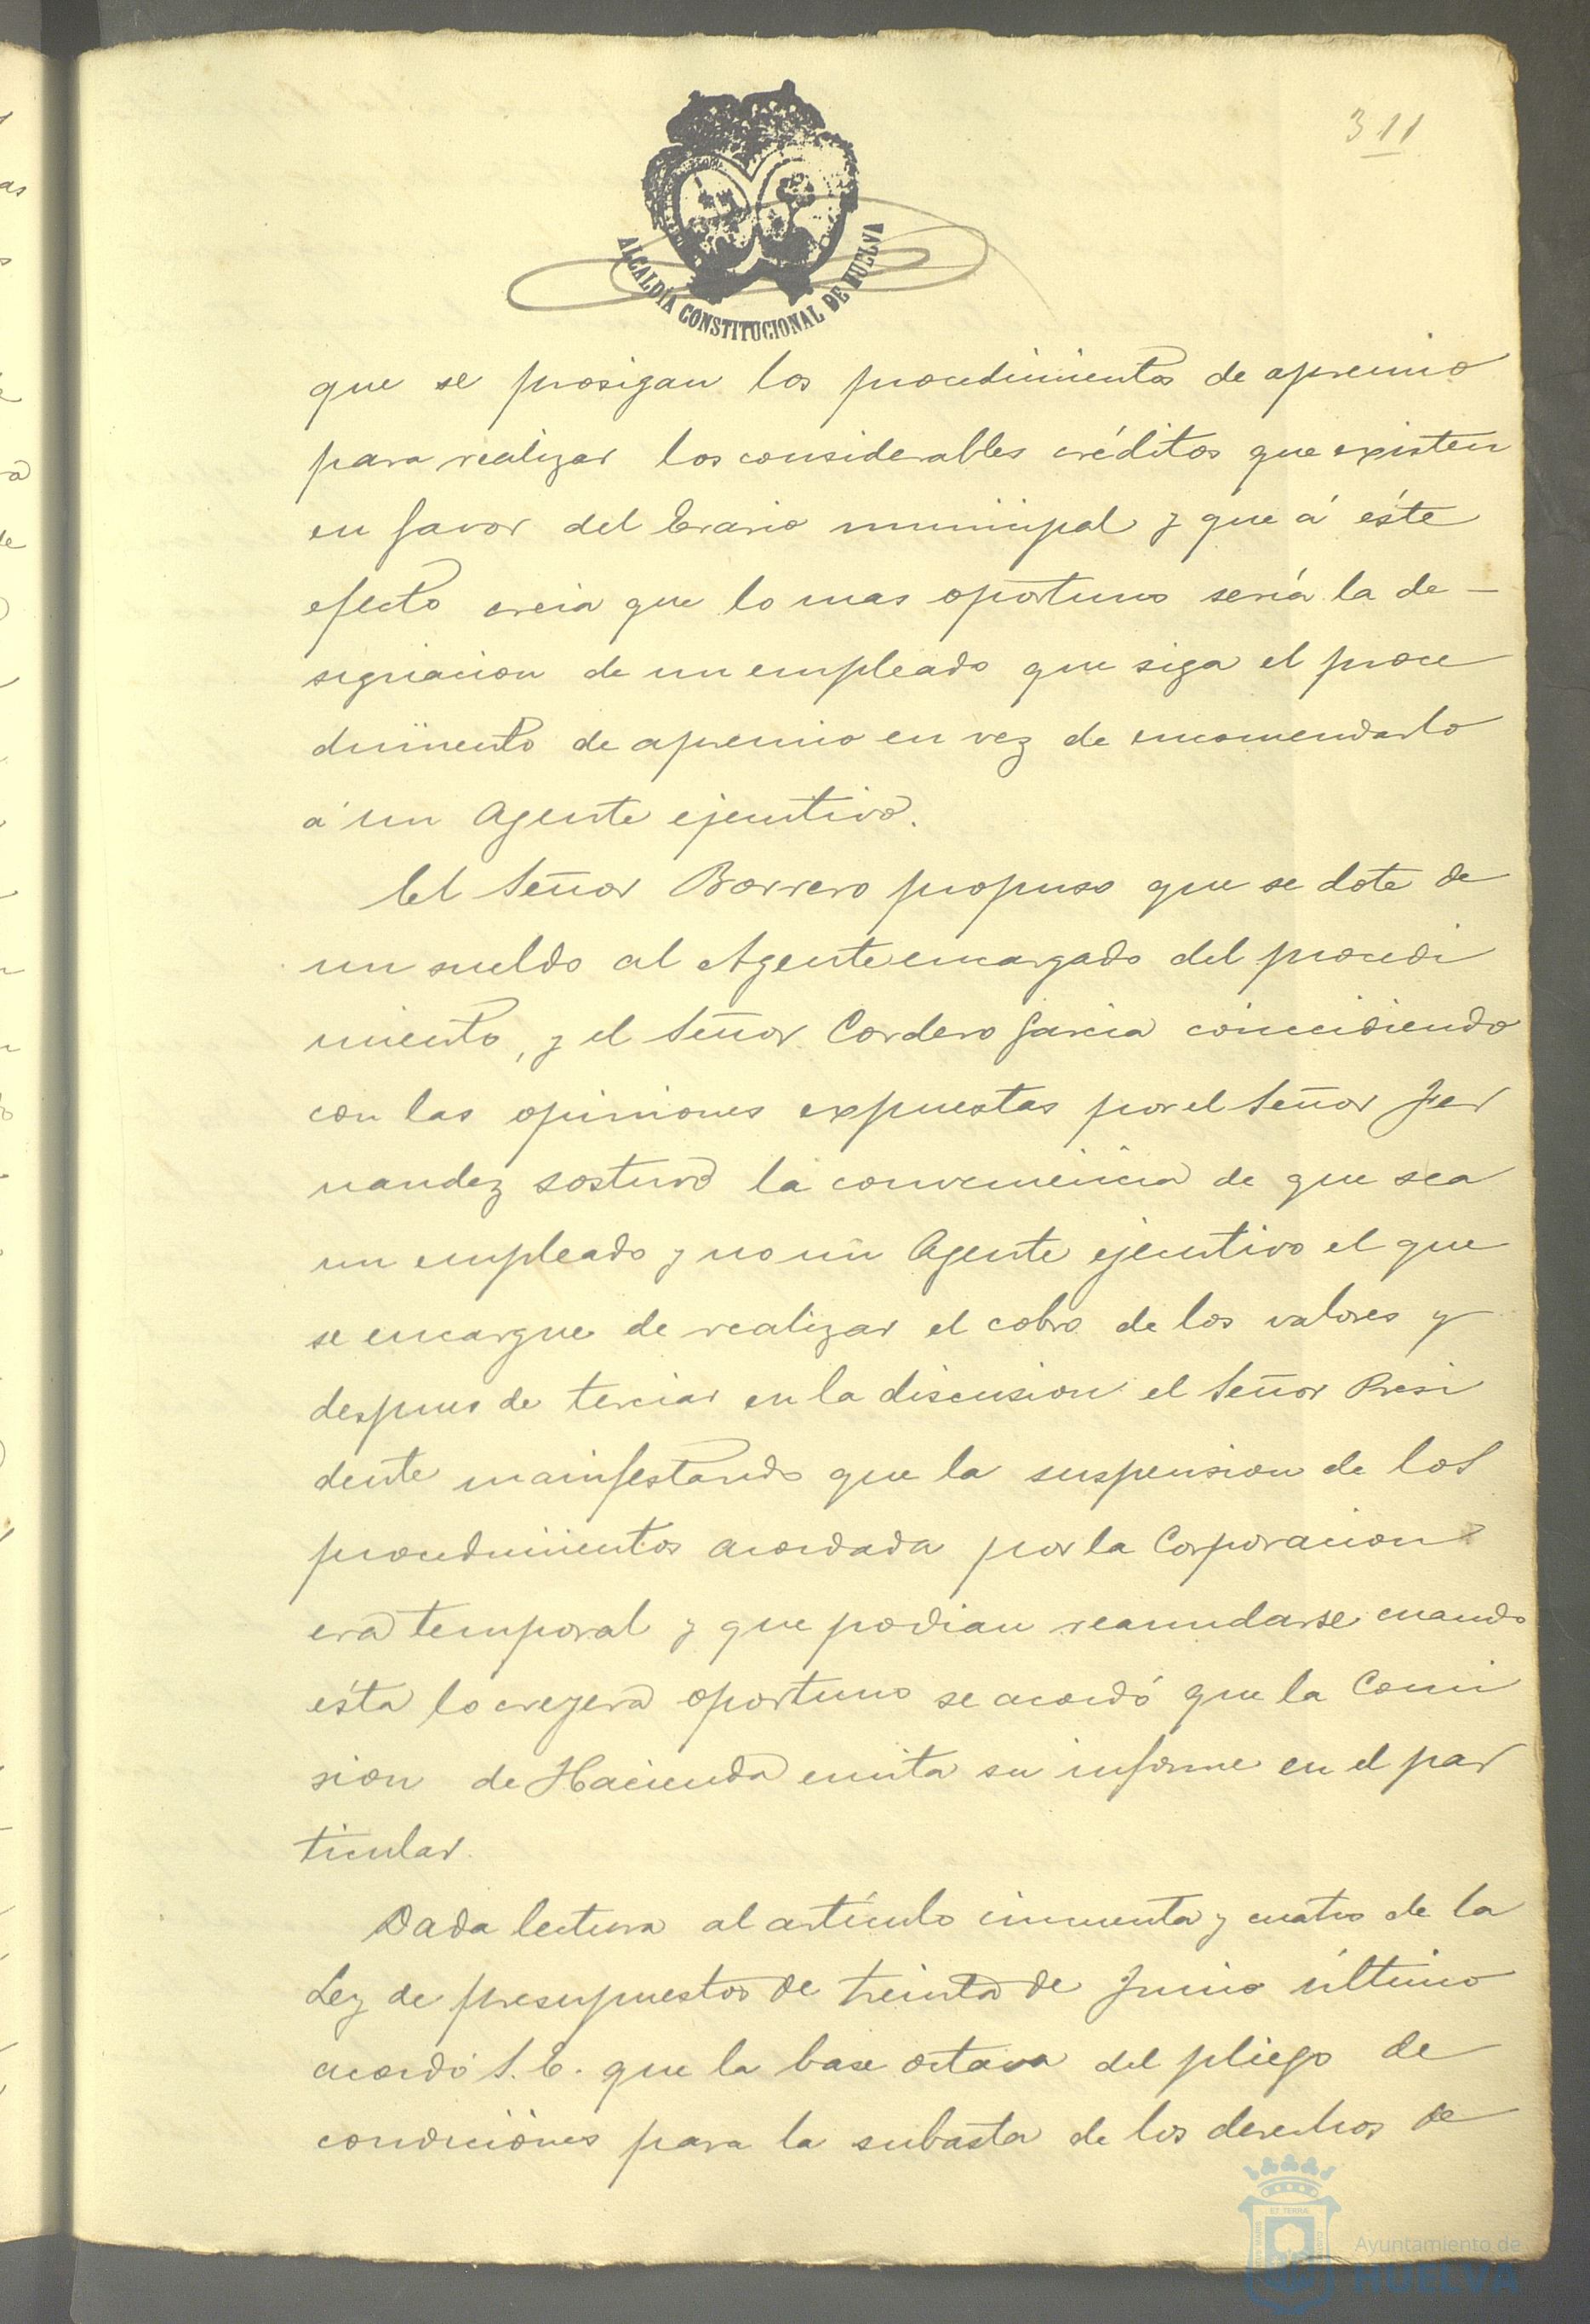 311
ALCALDÍA CONSTITUCIONAL DE HUELVA
que se prosigan los procedimientos de apremio
para realizar los considerables créditos que existen
en favor del Erario municipal y que á éste
efecto creia que lo mas oportuno seria la de-
signacion de un empleado que siga el proce
dimiento de apremio en vez de encomendarlo
á un Agente ejecutivo.
El Señor Borrero propuso que se dote de
un sueldo al Agente encargado del procedi
miento, y el Señor Cordero Garcia coincidiendo
con las opiniones expuestas por el Señor Fer
nandez sostuvo la conveniencia de que sea
un empleado y no un Agente ejecutivo el que
se encargue de realizar el cobro de los valores y
despues de terciar en la discusion el Señor Presi
dente manifestando que la suspension de los
procedimientos acordada por la Corporacion
era temporal y que podian reanudarse cuando
ésta lo creyera oportuno se acordó que la Comi
sion de Hacienda emita su informe en el par
ticular.
Dada lectura al artículo cincuenta y cuatro de la
Ley de presupuestos de treinta de Junio último
acordó S. E. que la base octava del pliego de
condiciones para la subasta de los derechos de
Ayuntamiento de
HUELVA